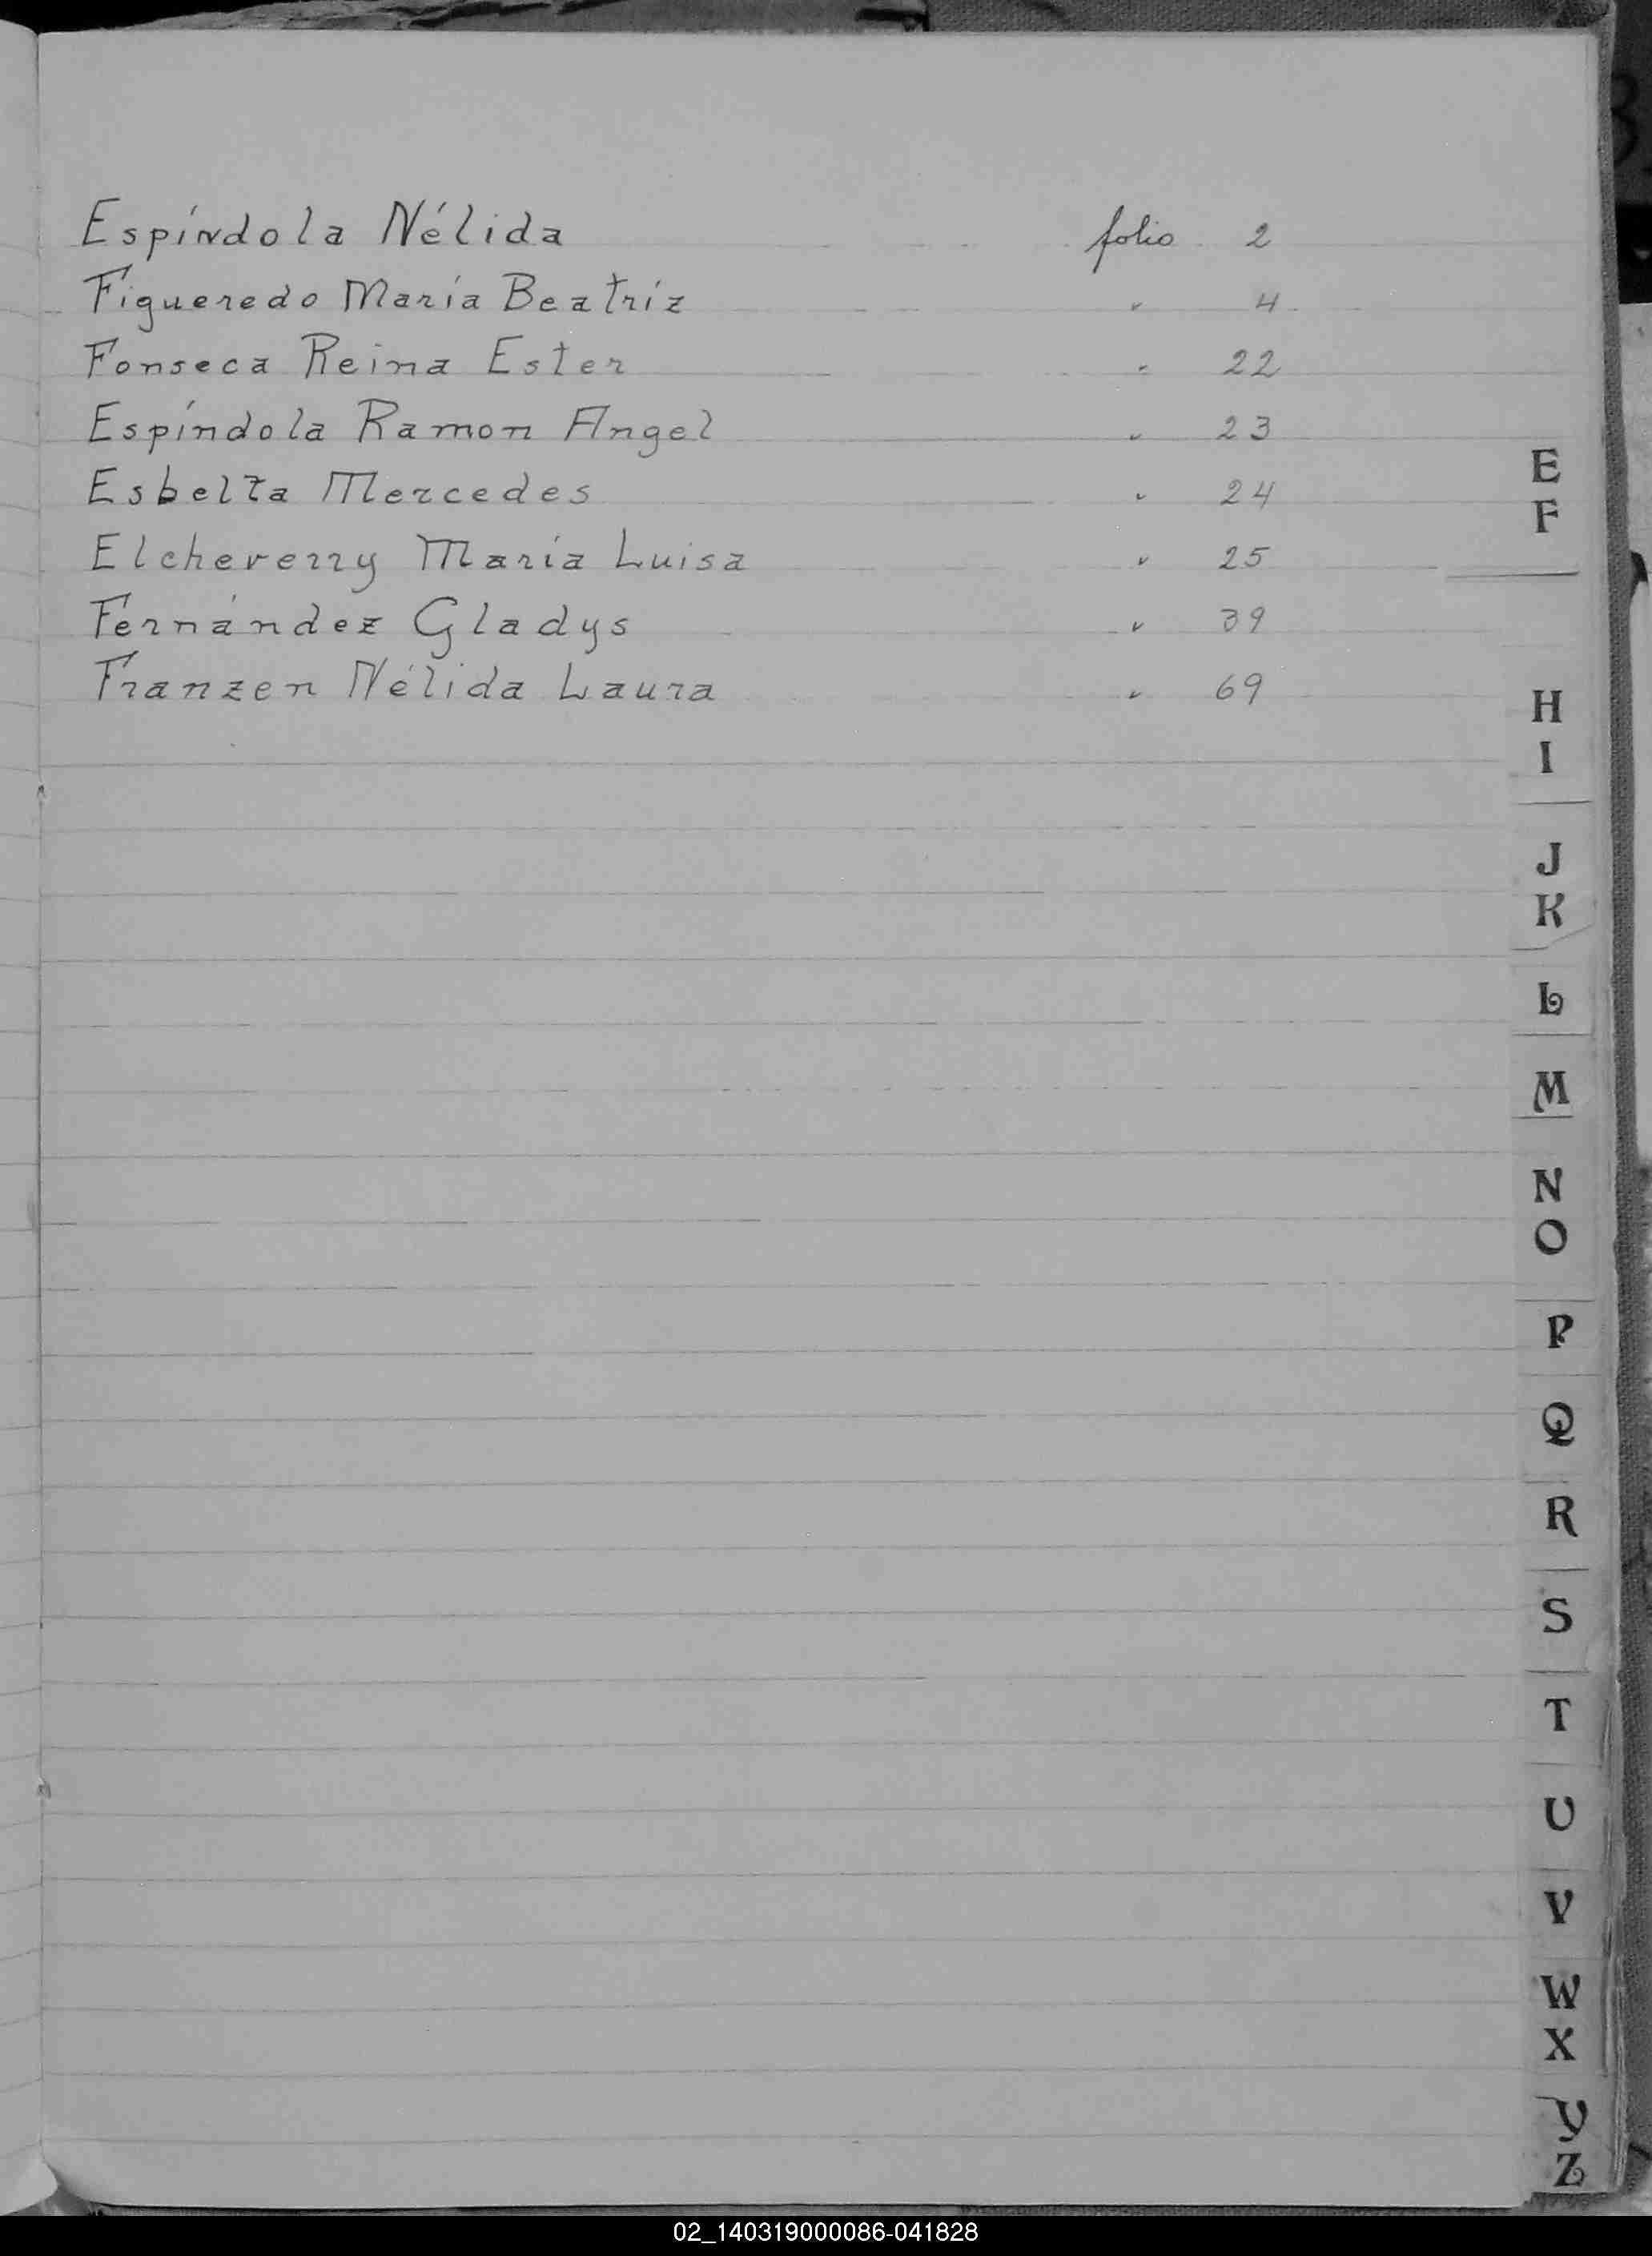 Espíndola Nélida folio 2
Figueredo María Beatríz " 4
Fonseca Reina Ester " 22
Espíndola Ramon Angel " 23
Esbelta Mercedes " 24
Elcheverry María Luisa " 25
Fernández Gladys " 39
Franzen Nélida Laura " 69
E
F
H
I
J
K
L
M
N
O
P
Q
R
S
T
U
V
W
X
Y
Z
02_140319000086-041828